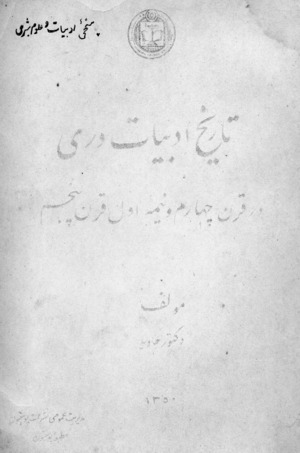 پوهنځیٔ ادبیات و علوم بشری
تاریخ ادبیات دری
در قرن چهارم و نیمه اول قرن پنجم
مؤلف
دکتور جاوید
۱۳۵۰